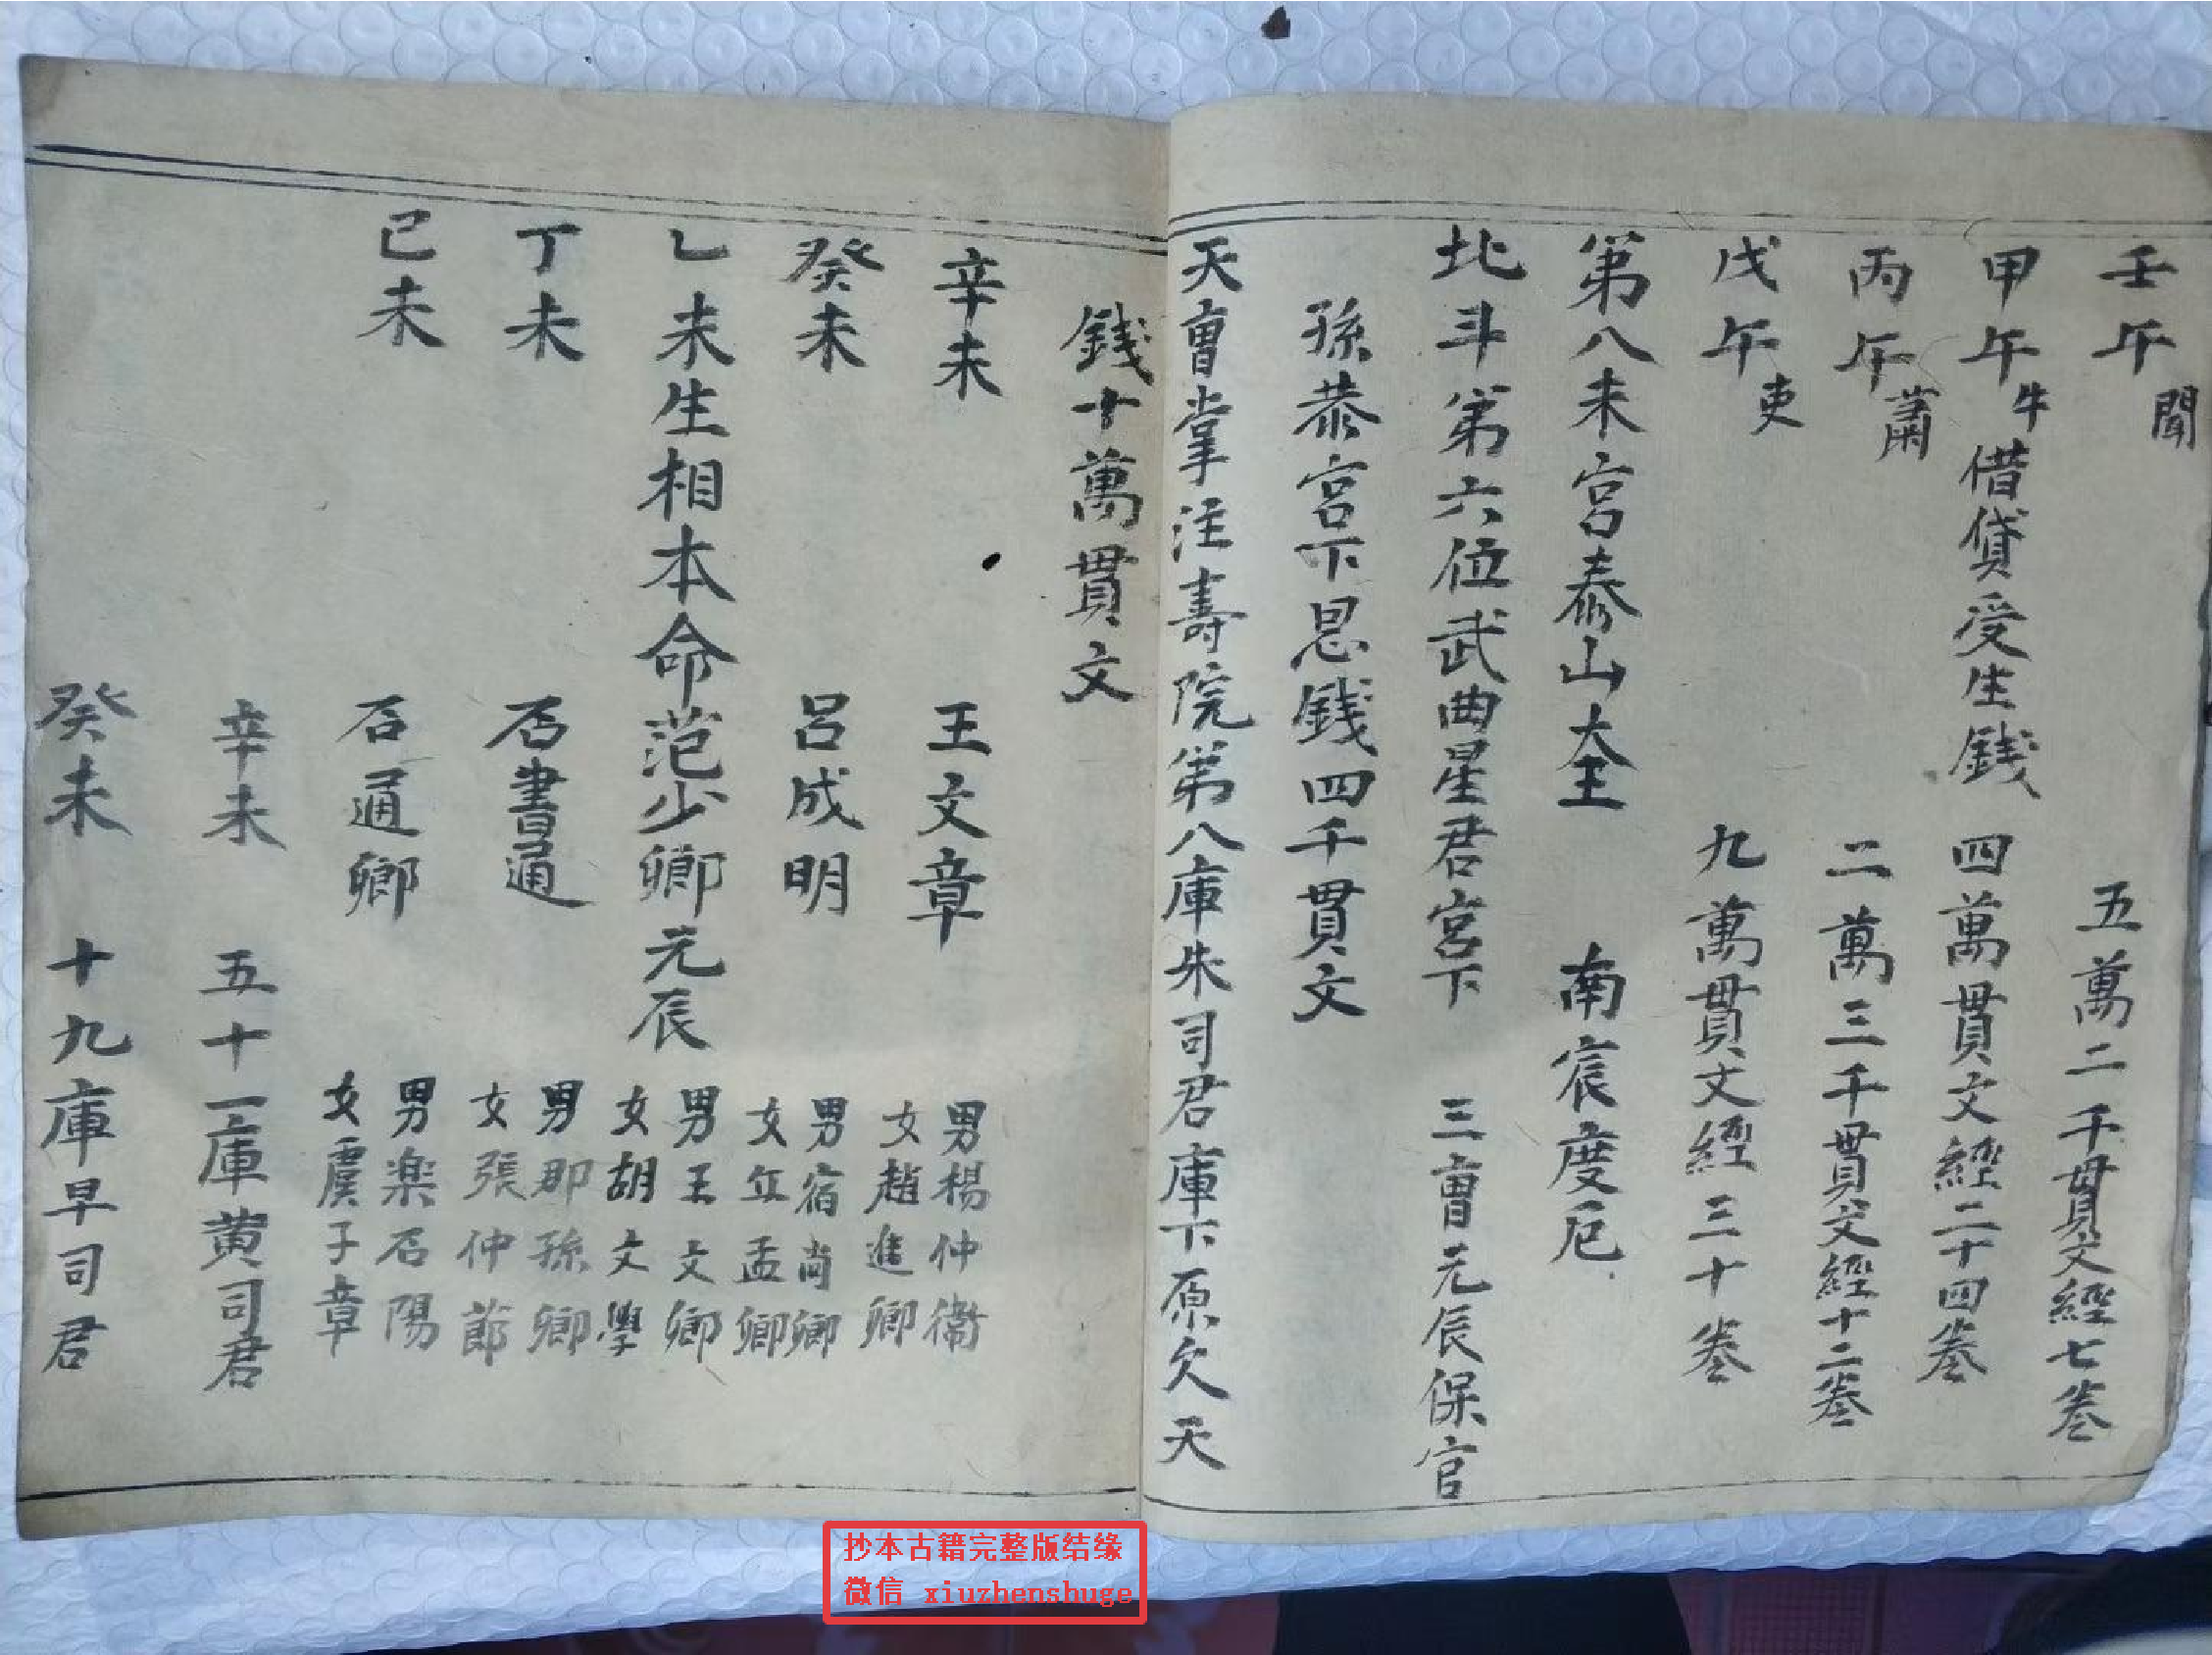 壬午 聞 五萬二千貫文經七卷
甲午 牛 借貸受生錢 四萬貫文經二十四卷
丙午 蕭 二萬三千貫文經十二卷
戊午 吏 九萬貫文經三十卷
第八未宮泰山大王 南宸度厄
北斗第六位武曲星君宮下 三曹元辰保官
孫恭宮下恩錢四千貫文
天曹掌注壽院第八庫朱司君庫下原欠天
錢十萬貫文
辛未 王文章 男楊仲衛 女趙進卿
癸未 呂成明 男宿尚卿 女丘孟卿
乙未生相本命范少卿元辰 男王文卿 女胡文學
丁未 石書通 男那孫卿 女張仲節
己未 石通卿 男楽石陽 女虞子章
辛未 五十一庫黄司君
癸未 十九庫早司君
抄本古籍完整版结缘
微信 xiuzhenshuge